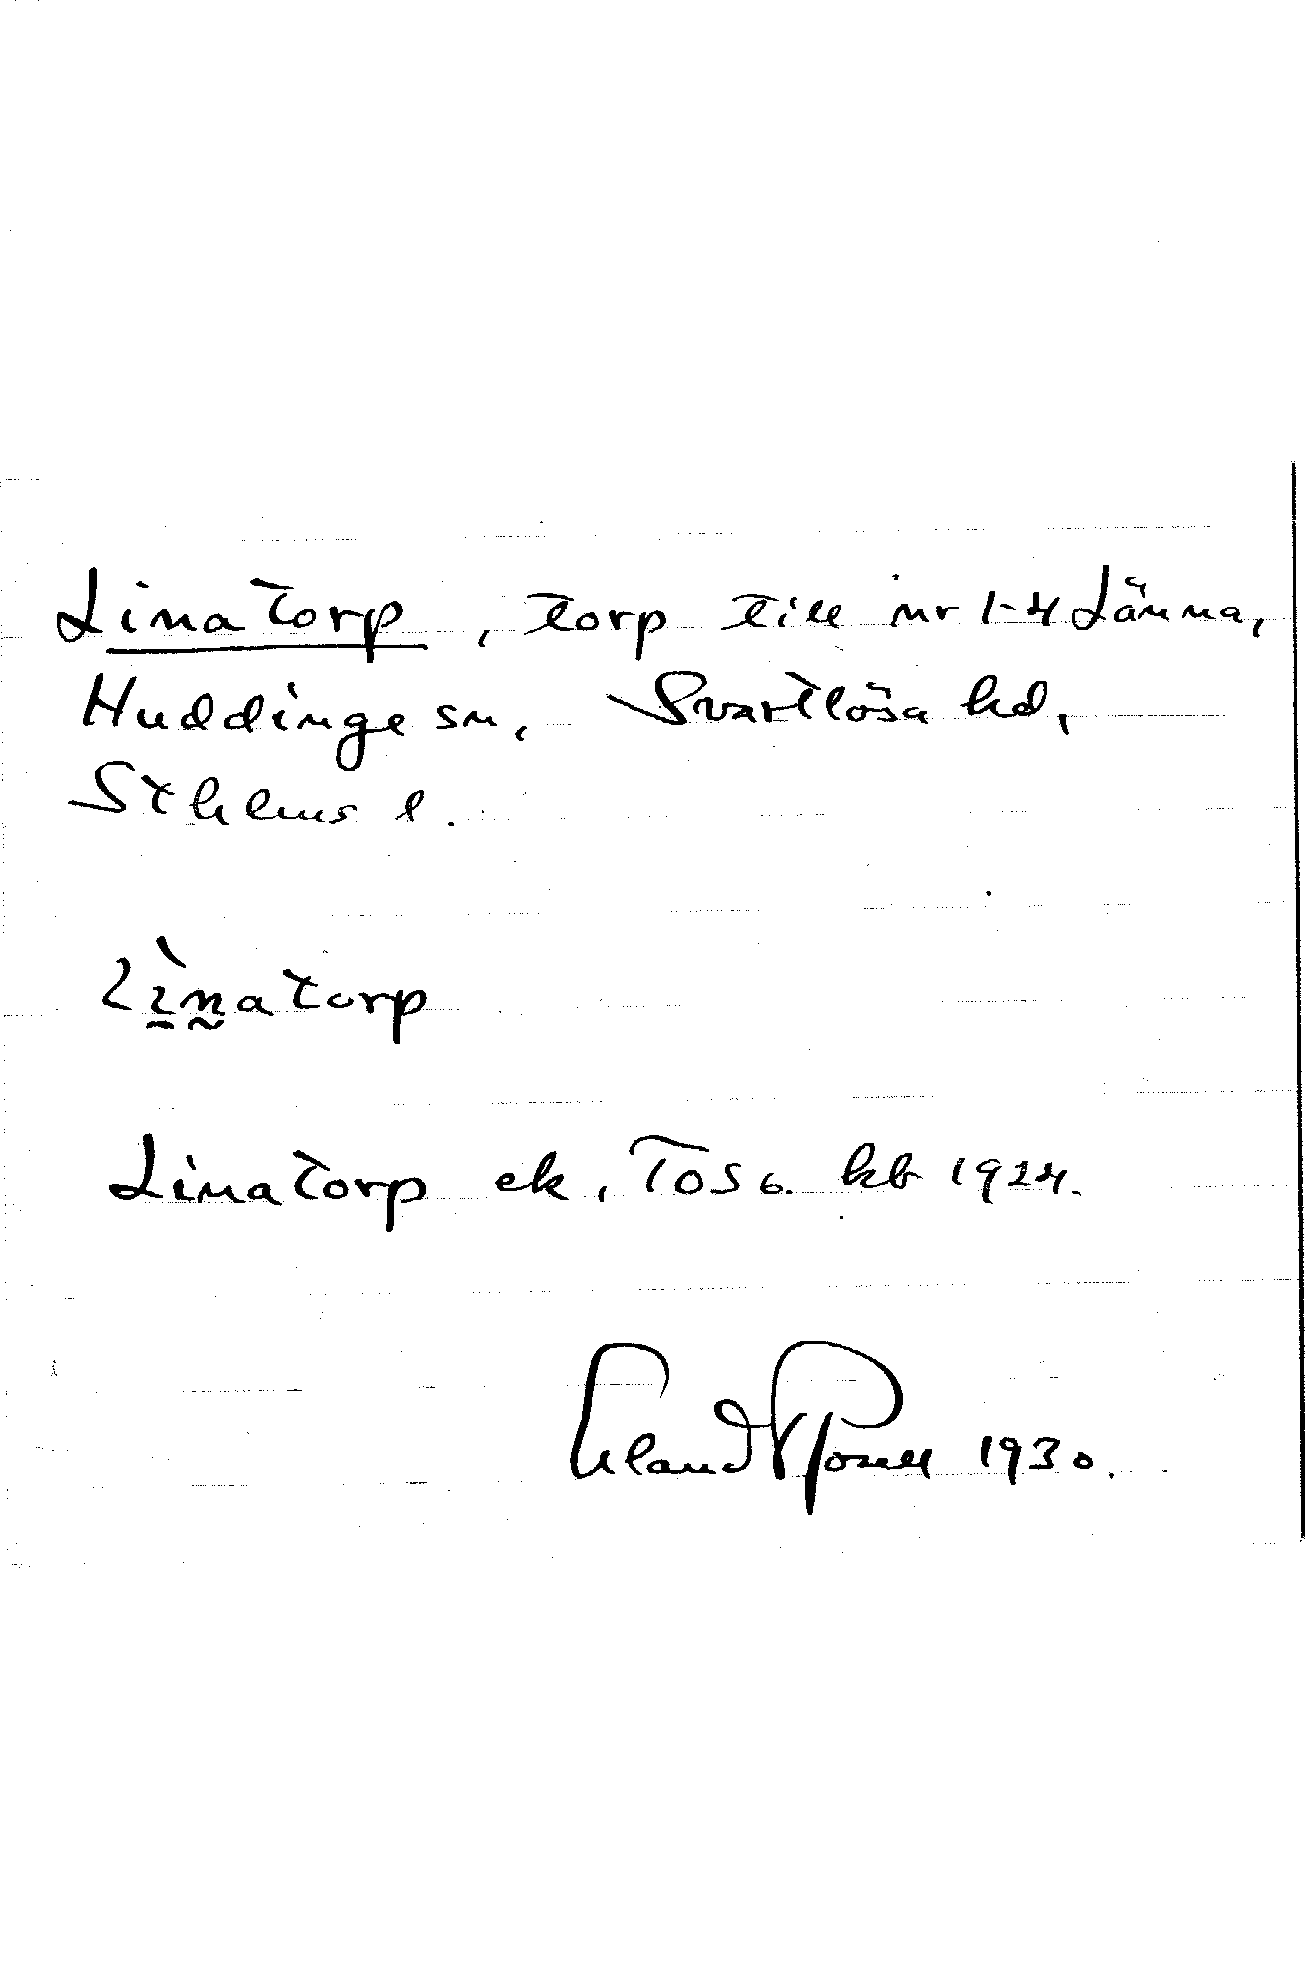 Linatorp, torp till nr 1-4 Länna,
Huddinge sn, Svartlösa hd,
Sthlms l.
Lìnatorp
Linatorp ek, TOSö. kb 1924.
Erland Rosell 1930.